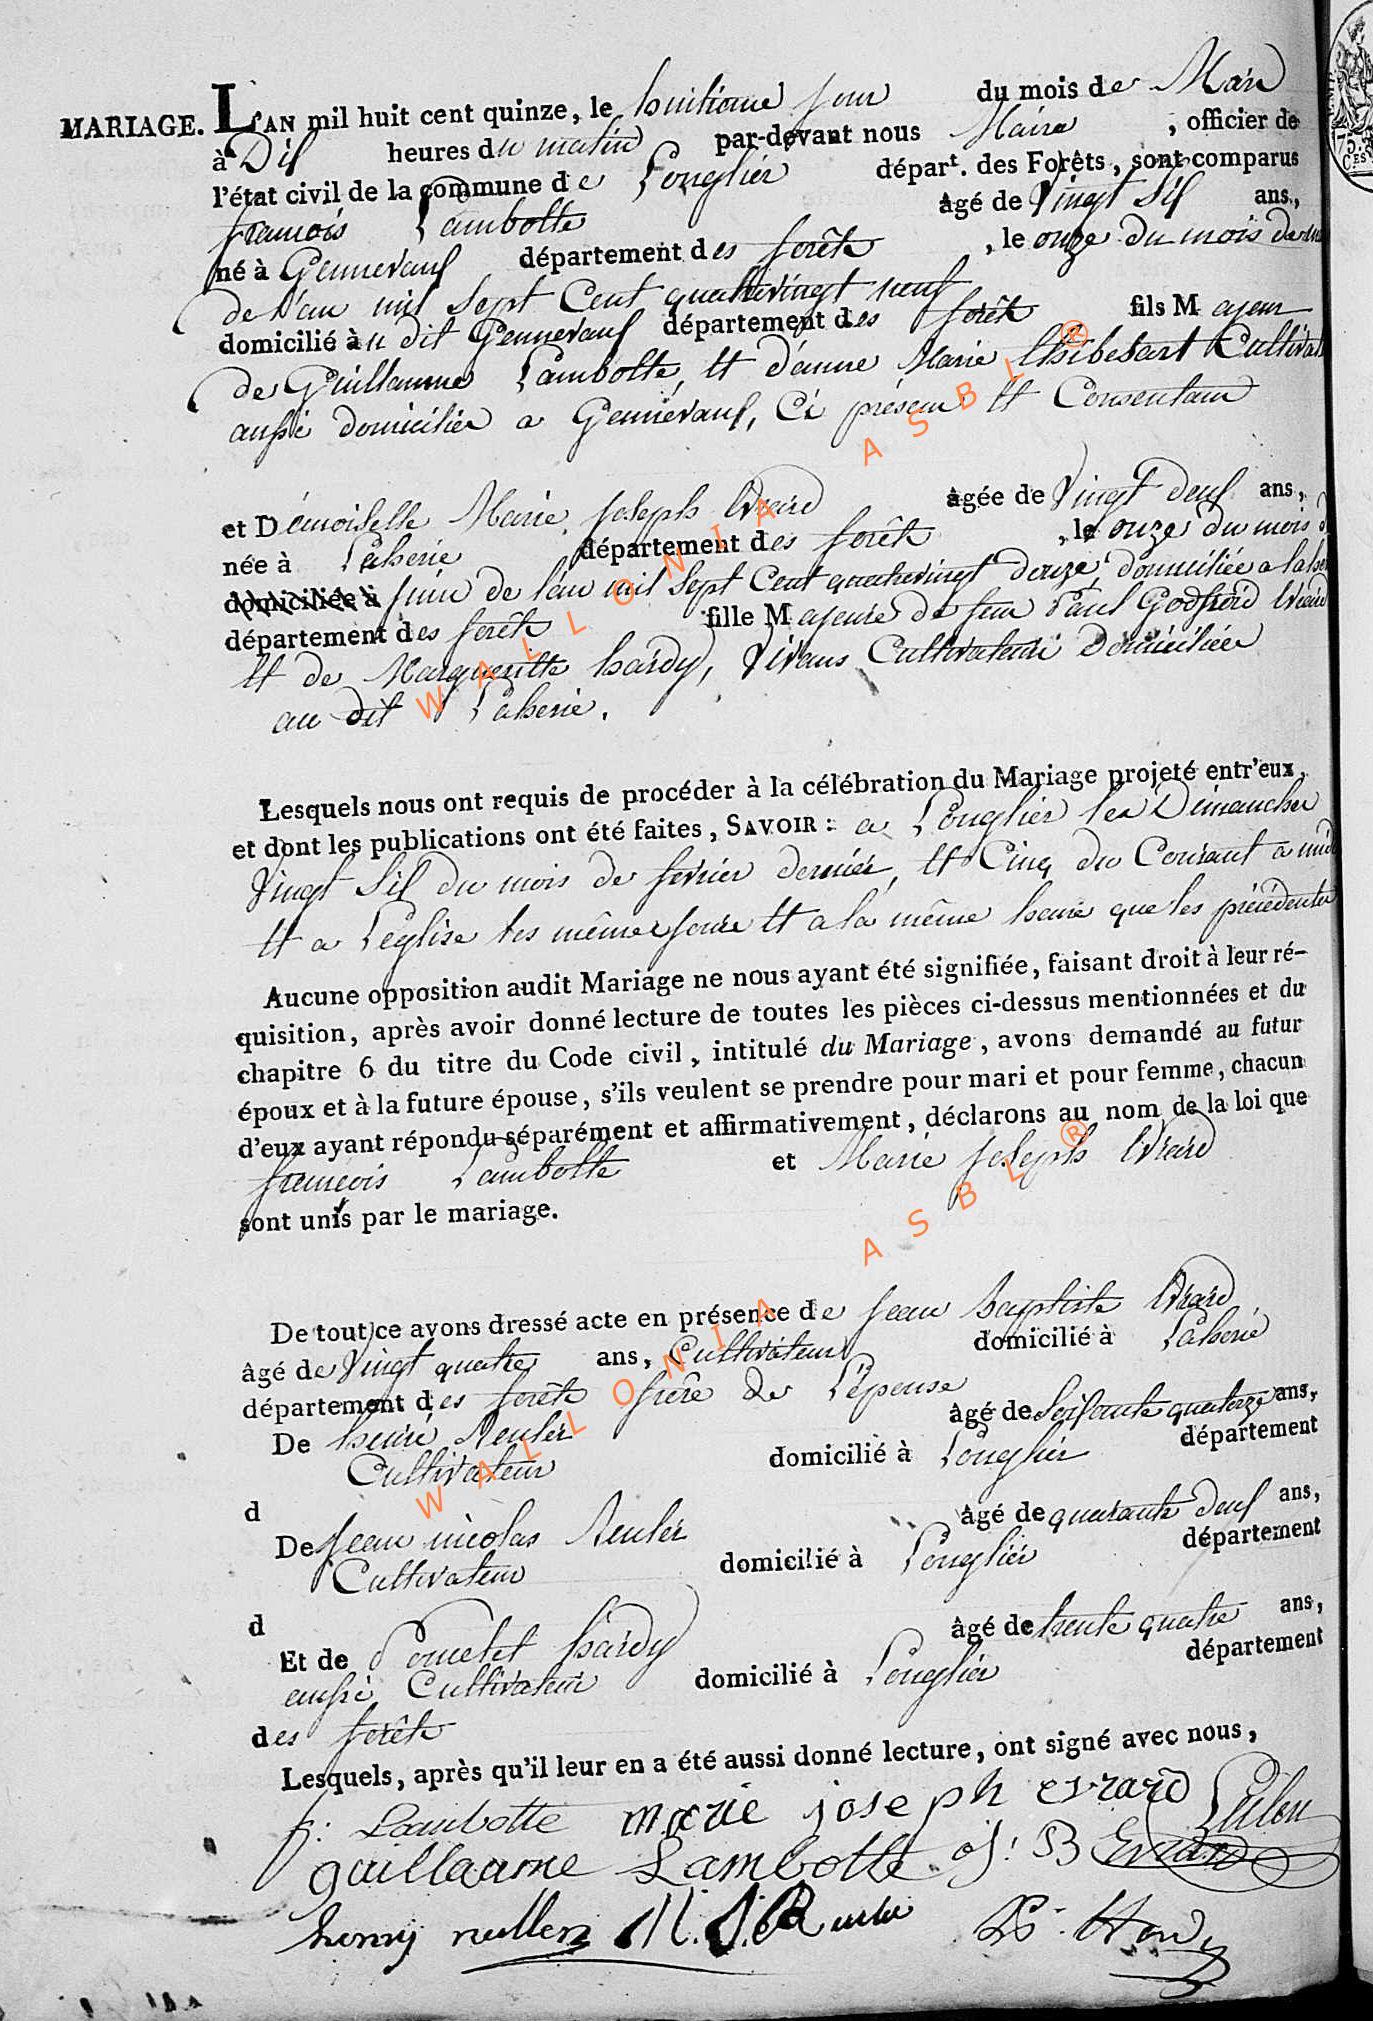 MARIAGE. L'AN mil huit cent quinze, le huitieme jour du mois de Mars
à Dix heures du matin par-devant nous Maire , officier de
l'état civil de la commune de Longlier départ. des Forêts, sont comparus
françois Lambotte âgé de Vingt Six ans,
né à Gennevaux département des forêts , le onze du mois de
de l'an mil sept Cent quatrevingt neuf
domicilié au dit Gennevaux département des forêts fils Majeur
de Guillaume Lambotte, et d'anne Marie Cultivat
aussi domicilié a Gennevaux, Ci présent et Consentant
et Demoiselle Marie joseph Evrard âgée de Vingt deux ans,
née à Laherie département des forêts , le onze du mois d
domiciliée à juin de l'an mil sept Cent quatrevingt douze, domiciliée a laher
département des forêts fille Majeure de feu Paul Godfroid Evrard
et de Marguerite hardy, Vivans Cultivateurs Domiciliée
au dit Laherie.
Lesquels nous ont requis de procéder à la célébration du Mariage projeté entr'eux,
et dont les publications ont été faites, SAVOIR : a Longlier les Dimanches
Vingt Six du mois de fevrier dernier, et Cinq du Courant a midi
et a L'église les mêmes jours et a la même heure que les précédentes
Aucune opposition audit Mariage ne nous ayant été signifiée, faisant droit à leur ré-
quisition, après avoir donné lecture de toutes les pièces ci-dessus mentionnées et du
chapitre 6 du titre du Code civil, intitulé du Mariage, avons demandé au futur
époux et à la future épouse, s'ils veulent se prendre pour mari et pour femme, chacun
d'eux ayant répondu séparément et affirmativement, déclarons au nom de la loi que
françois Lambotte et Marie joseph Evrard
sont unis par le mariage.
De tout ce avons dressé acte en présence de jean baptiste Evrard
âgé de Vingt quatre ans, Cultivateur domicilié à Laherie
département des forêts frère de L'épouse
De henri Reuler âgé de Soixante quatorze ans,
Cultivateur domicilié à Longlier département
d
De jean nicolas Reuler âgé de quarante deux ans,
Cultivateur domicilié à Longlier département
d
Et de Poncelet hardy âgé de trente quatre ans,
aussi Cultivateur domicilié à Longlier département
des forêts
Lesquels, après qu'il leur en a été aussi donné lecture, ont signé avec nous,
f: Lambotte marie joseph evrard
guillaume Lambotte J: B Evrard
henry
WALLONIA ASBL ®
WALLONIA ASBL ®